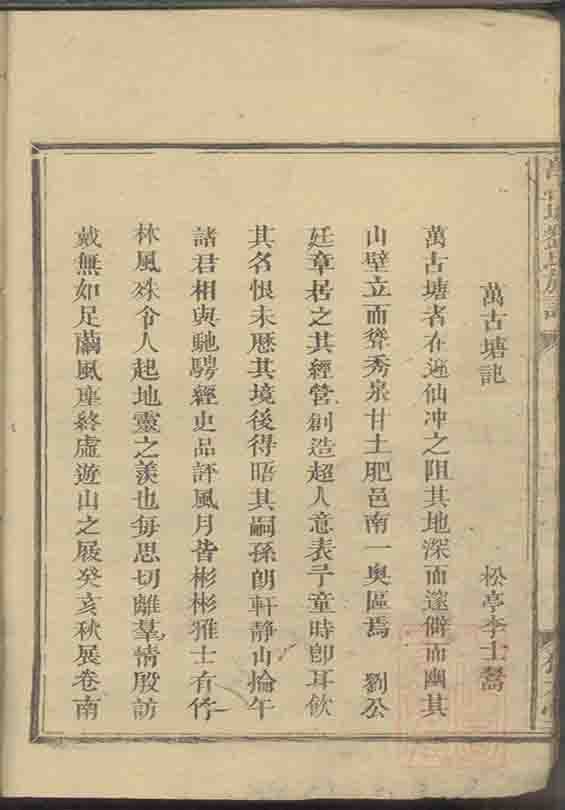 萬古塘記 松亭李士喬
萬古塘者在遍仙冲之阻其地深而邃僻而幽其
山壁立而聳秀泉甘土肥邑南一奧區焉 劉公
廷章居之其經營創造超人意表予童時卽耳飲
其名恨未歷其境後得晤其嗣孫朗軒靜山掄午
諸君相與馳騁經史品評風月皆彬彬雅士有竹
林風殊令人起地靈之羨也每思切離羣情殷訪
戴無如足繭風塵終虛遊山之屐癸亥秋展卷南